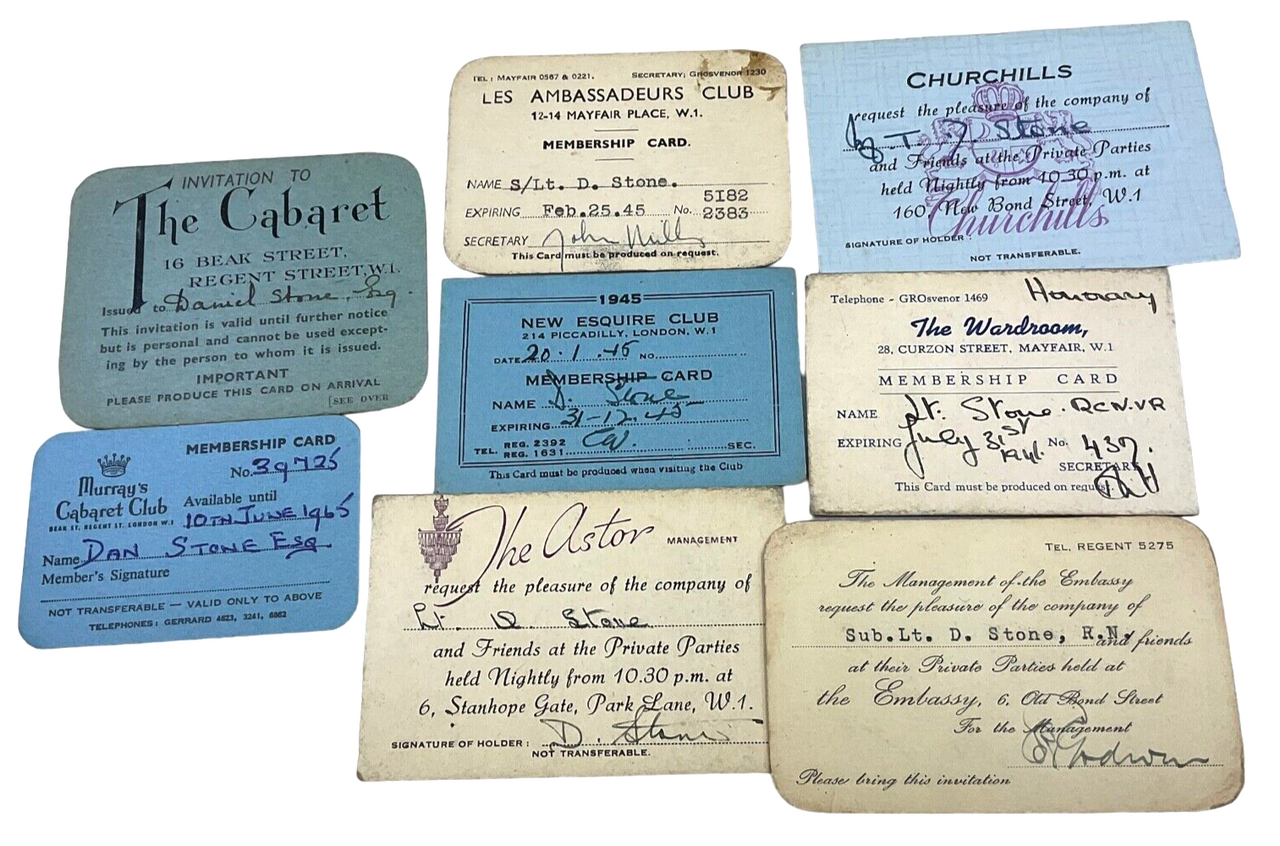 INVITATION TO
The Cabaret
16 BEAK STREET,
REGENT STREET, W.1.
Issued to Daniel Stone, Esq.
This invitation is valid until further notice
but is personal and cannot be used except-
ing by the person to whom it is issued.
IMPORTANT
PLEASE PRODUCE THIS CARD ON ARRIVAL
[SEE OVER
MEMBERSHIP CARD
No. 39725
Murray's
Cabaret Club
BEAK ST. REGENT ST. LONDON W.1
Available until
10TH JUNE 1965
Name DAN STONE ESQ
Member's Signature
NOT TRANSFERABLE — VALID ONLY TO ABOVE
TELEPHONES: GERRARD 4623, 3241, 6862
TEL: MAYFAIR 0567 & 0221. SECRETARY; GROSVENOR 1230
LES AMBASSADEURS CLUB
12-14 MAYFAIR PLACE, W.1.
MEMBERSHIP CARD.
NAME S/Lt. D. Stone.
5182
EXPIRING Feb.25.45 No. 2383
SECRETARY John Mills
This Card must be produced on request.
1945
NEW ESQUIRE CLUB
214 PICCADILLY, LONDON, W.1
DATE 20.1.45 NO.
MEMBERSHIP CARD
NAME D. Stone
EXPIRING 31-12.45
TEL. REG. 2392
REG. 1631 SEC.
This Card must be produced when visiting the Club
The Astor MANAGEMENT
request the pleasure of the company of
Lt. D. Stone
and Friends at the Private Parties
held Nightly from 10.30 p.m. at
6, Stanhope Gate, Park Lane, W.1.
SIGNATURE OF HOLDER: D. Stone
NOT TRANSFERABLE.
CHURCHILLS
request the pleasure of the company of
Stone
and Friends at the Private Parties
held Nightly from 10.30 p.m. at
160 New Bond Street, W.1
Churchills
SIGNATURE OF HOLDER:
NOT TRANSFERABLE.
Telephone - GROsvenor 1469 Honorary
The Wardroom,
28, CURZON STREET, MAYFAIR, W.1
MEMBERSHIP CARD
NAME Lt. Stone. RCN.VR
EXPIRING July 31st No. 437.
SECRETARY
This Card must be produced on request.
TEL. REGENT 5275
The Management of the Embassy
request the pleasure of the company of
Sub.Lt. D. Stone, R.N. and friends
at their Private Parties held at
the Embassy, 6, Old Bond Street
For the Management
Please bring this invitation